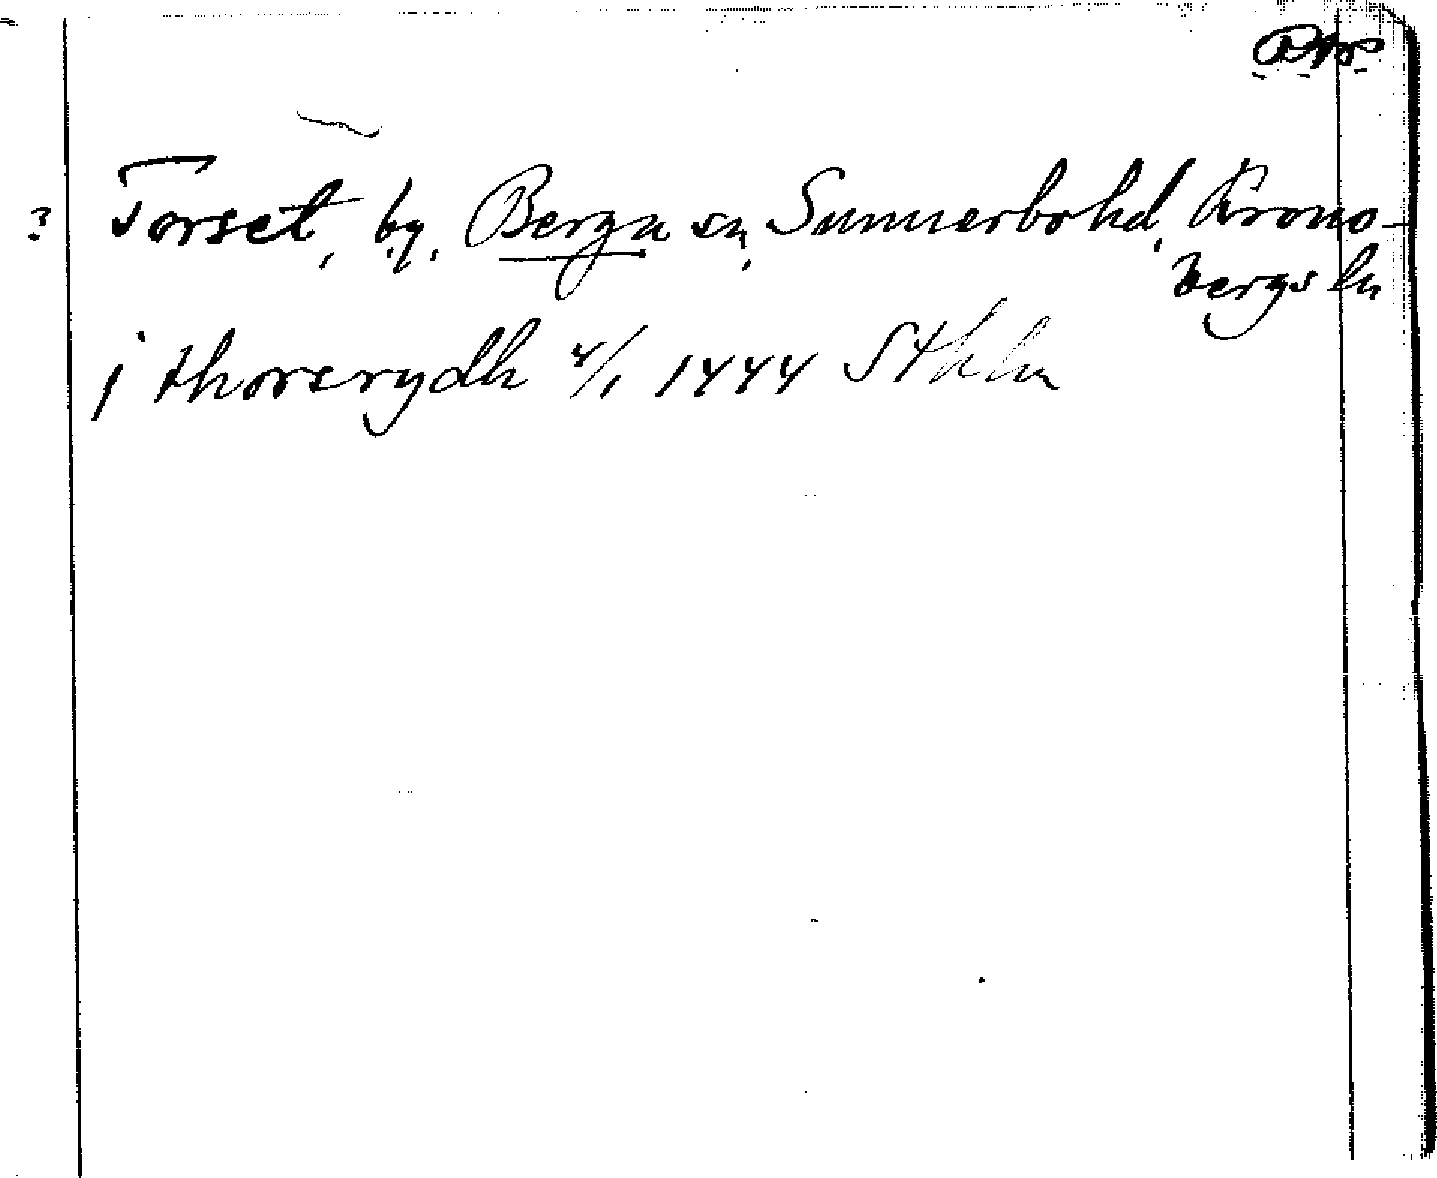 ? Torset, by, Berga sn, Sunnerbo hd, Krono-
bergs ln
j thorserydh 4/1 1444 Sthlm